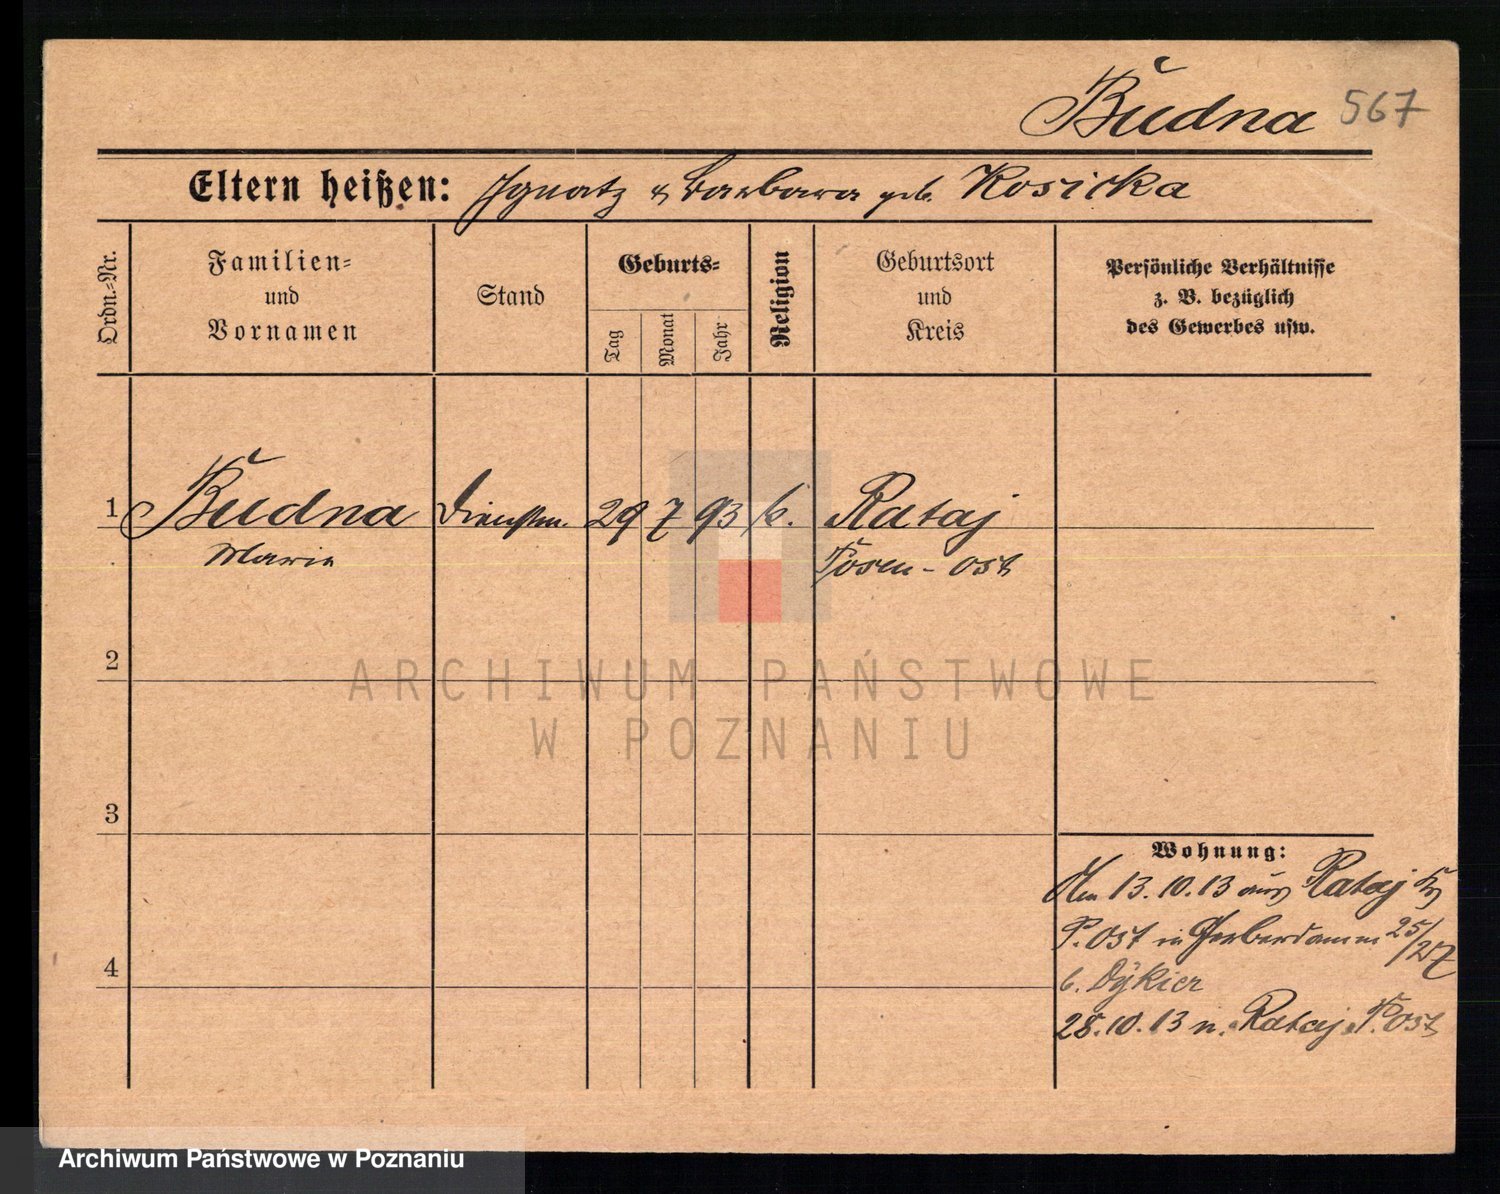 Budna 567
Eltern heißen: Ignatz & Barbara geb. Kosicka
Ordn.-Nr.
Familien-
und
Vornamen
Stand
Geburts-
Tag
Monat
Jahr
Religion
Geburtsort
und
Kreis
Persönliche Verhältnisse
z. B. bezüglich
des Gewerbes usw.
1 Budna Dienstm. 29 7 93 k. Rataj
Maria Posen-Ost
2
3
4
Wohnung:
13.10.13 aus Rataj Kr
P. Ost in Gerberdamm 25/27
b. Dykier
28.10.13 n. Rataj P. Ost
ARCHIWUM PAŃSTWOWE
W POZNANIU
Archiwum Państwowe w Poznaniu